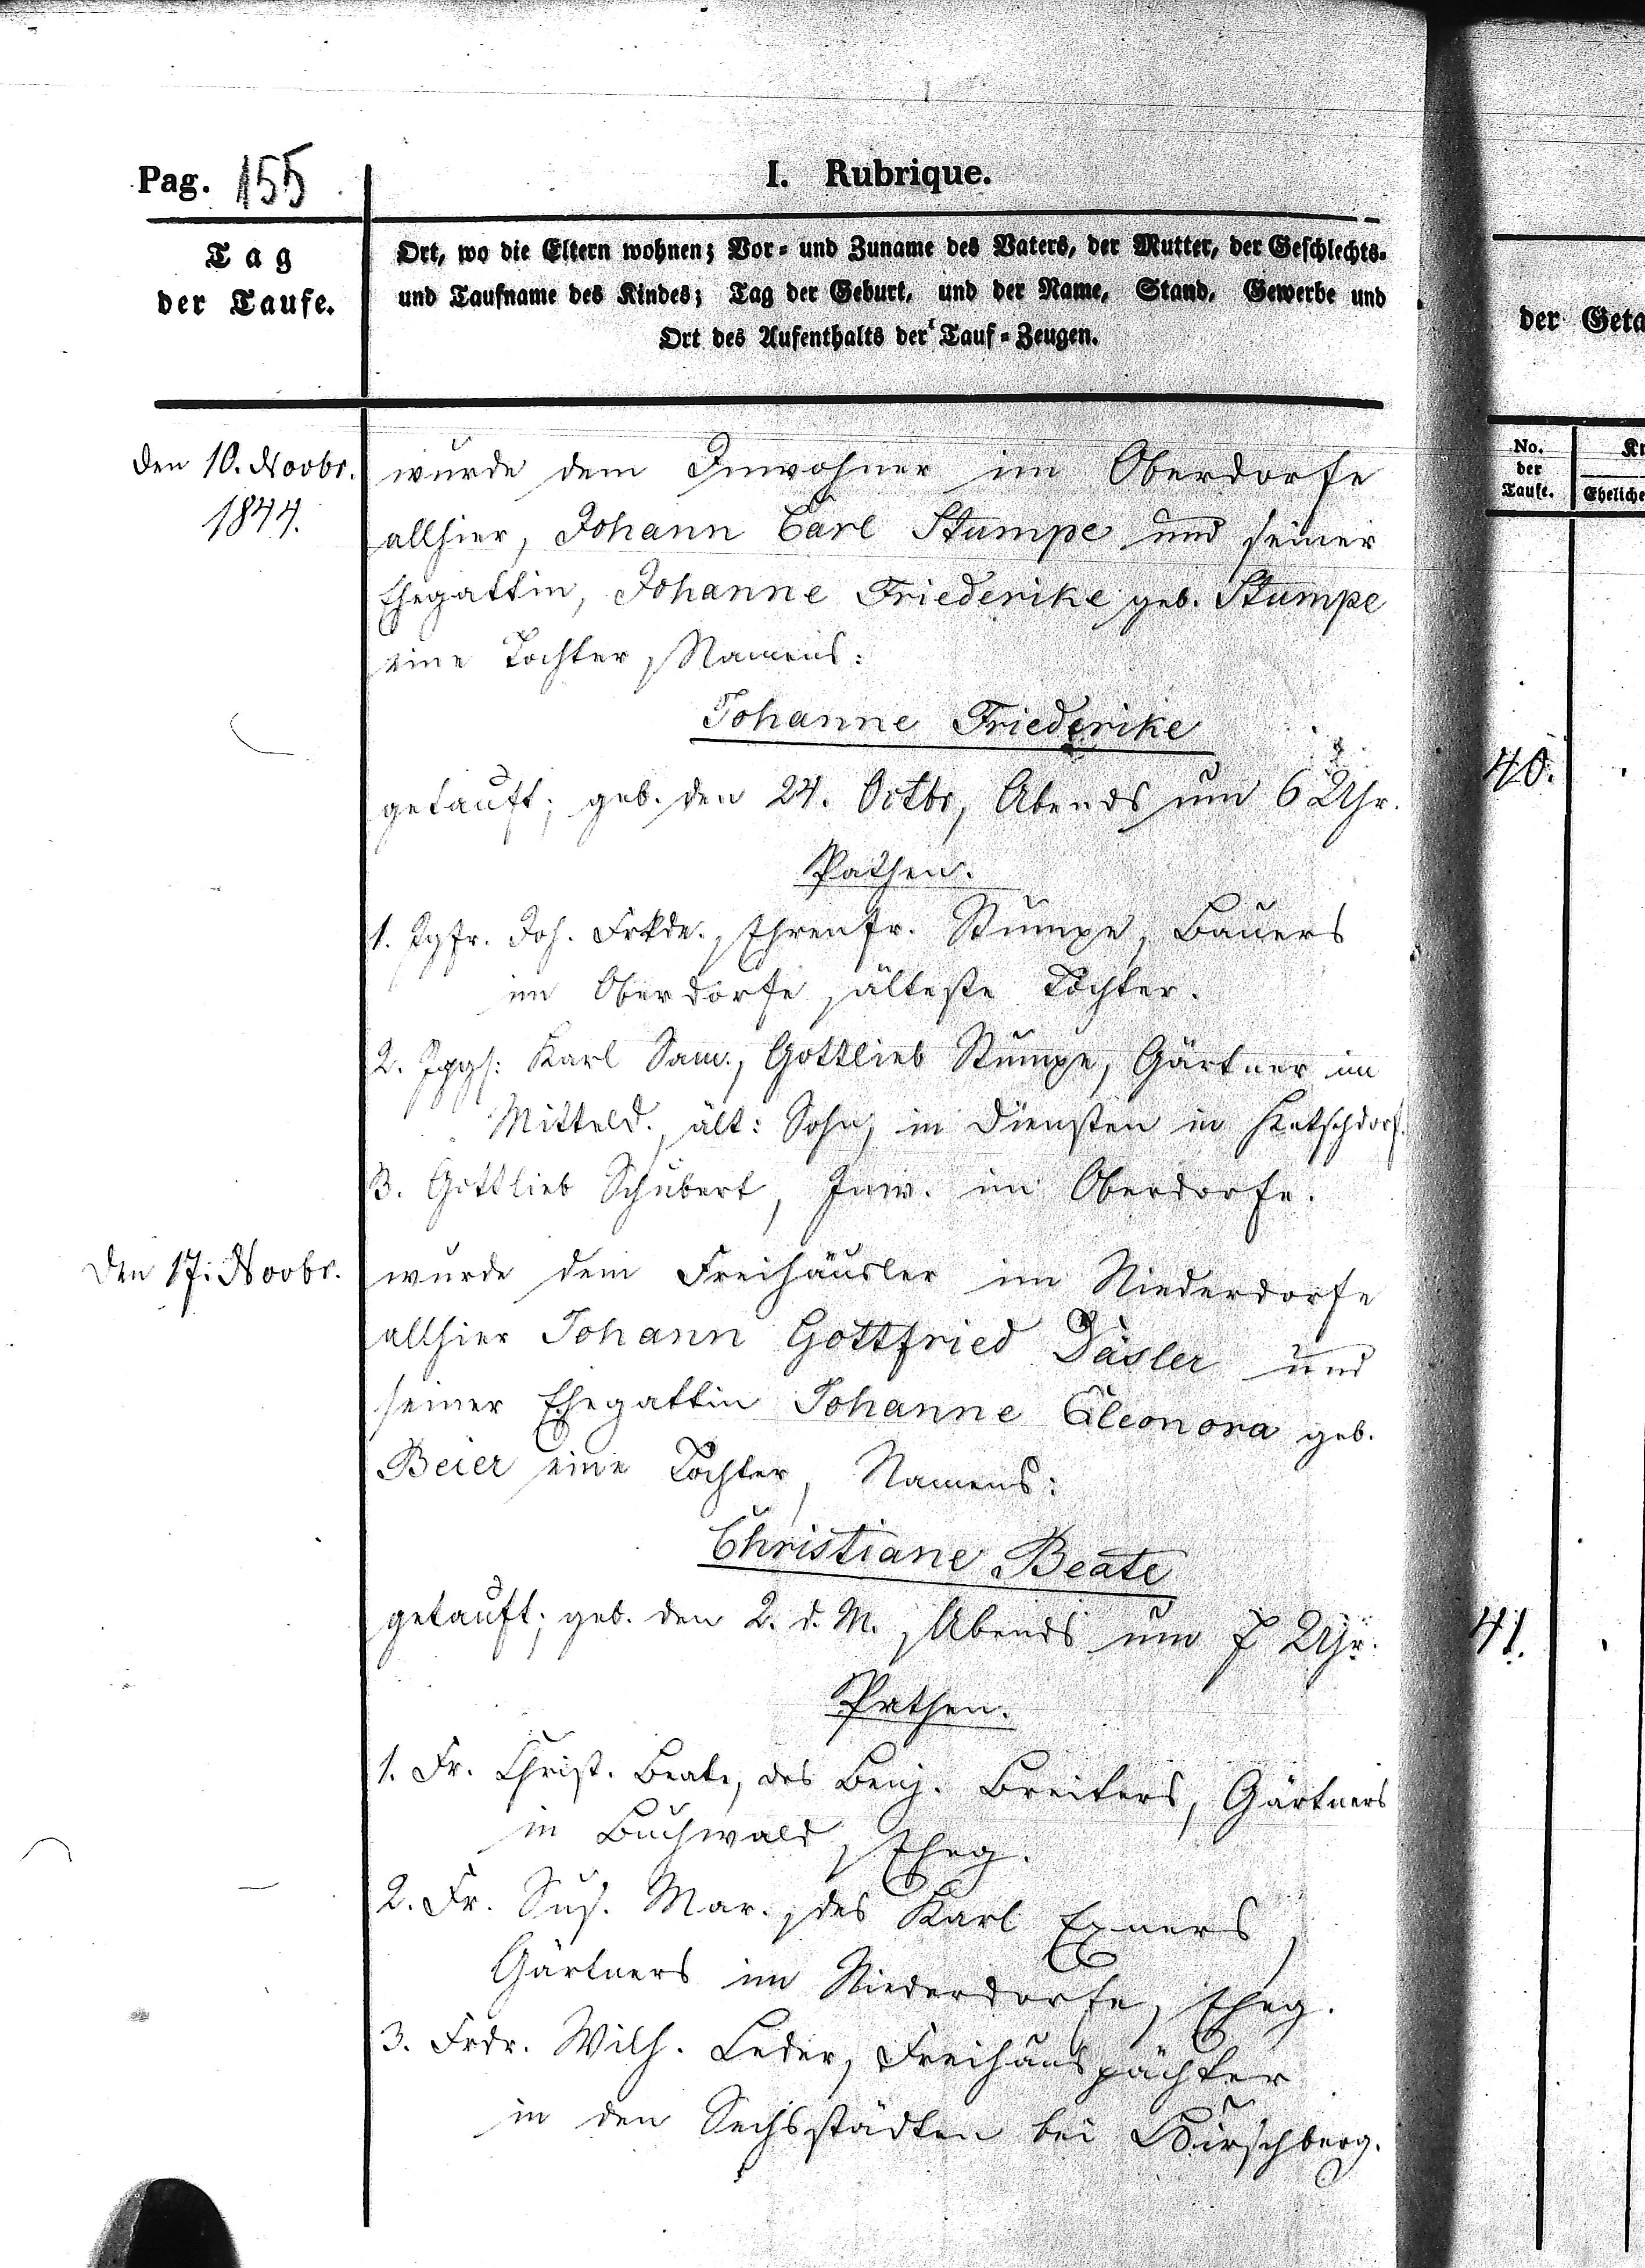 Pag. 155
I. Rubrique.
Tag
der Taufe.
Ort, wo die Eltern wohnen; Vor- und Zuname des Vaters, der Mutter, der Geschlechts-
und Taufname des Kindes; Tag der Geburt, und der Name, Stand, Gewerbe und
Ort des Aufenthalts der Tauf-Zeugen.
der Geta
No.
der
Taufe.
Eheliche
den 10. Novbr.
1844.
wurde dem Inwohner im Oberdorfe
allhier, Johann Carl Stumpe und seiner
Ehegattin, Johanne Friederike geb. Stumpe
eine Tochter, Namens:
Johanne Friederike
getauft; geb. den 24. Octbr, Abends um 6 Uhr.
40.
Pathen.
1. Jgfr. Joh. Frkde., Ehrenfr. Stumpe, Bauers
im Oberdorfe, älteste Tochter.
2. Jggs: Karl Sam., Gottlieb Stumpe, Gärtner im
Mitteld., ält: Sohn, in Diensten in Ketschdorf.
3. Gottlieb Schubert, Inw. im Oberdorfe.
den 17. Novbr.
wurde dem Freihäusler im Niederdorfe
allhier Johann Gottfried Däsler und
seiner Ehegattin Johanne Eleonora geb.
Beier eine Tochter, Namens:
Christiane Beate
getauft; geb. den 2. d. M., Abends um 7 Uhr.
41.
Pathen.
1. Fr. Christ. Beate, des Benj. Breiters, Gärtners
in Buchwald, Eheg.
2. Fr. Sus. Mar., des Karl Exners,
Gärtners im Niederdorfe, Eheg.
3. Frdr. Wilh. Leder, Freihauspächter
in den Sechsstädten bei Hirschberg.